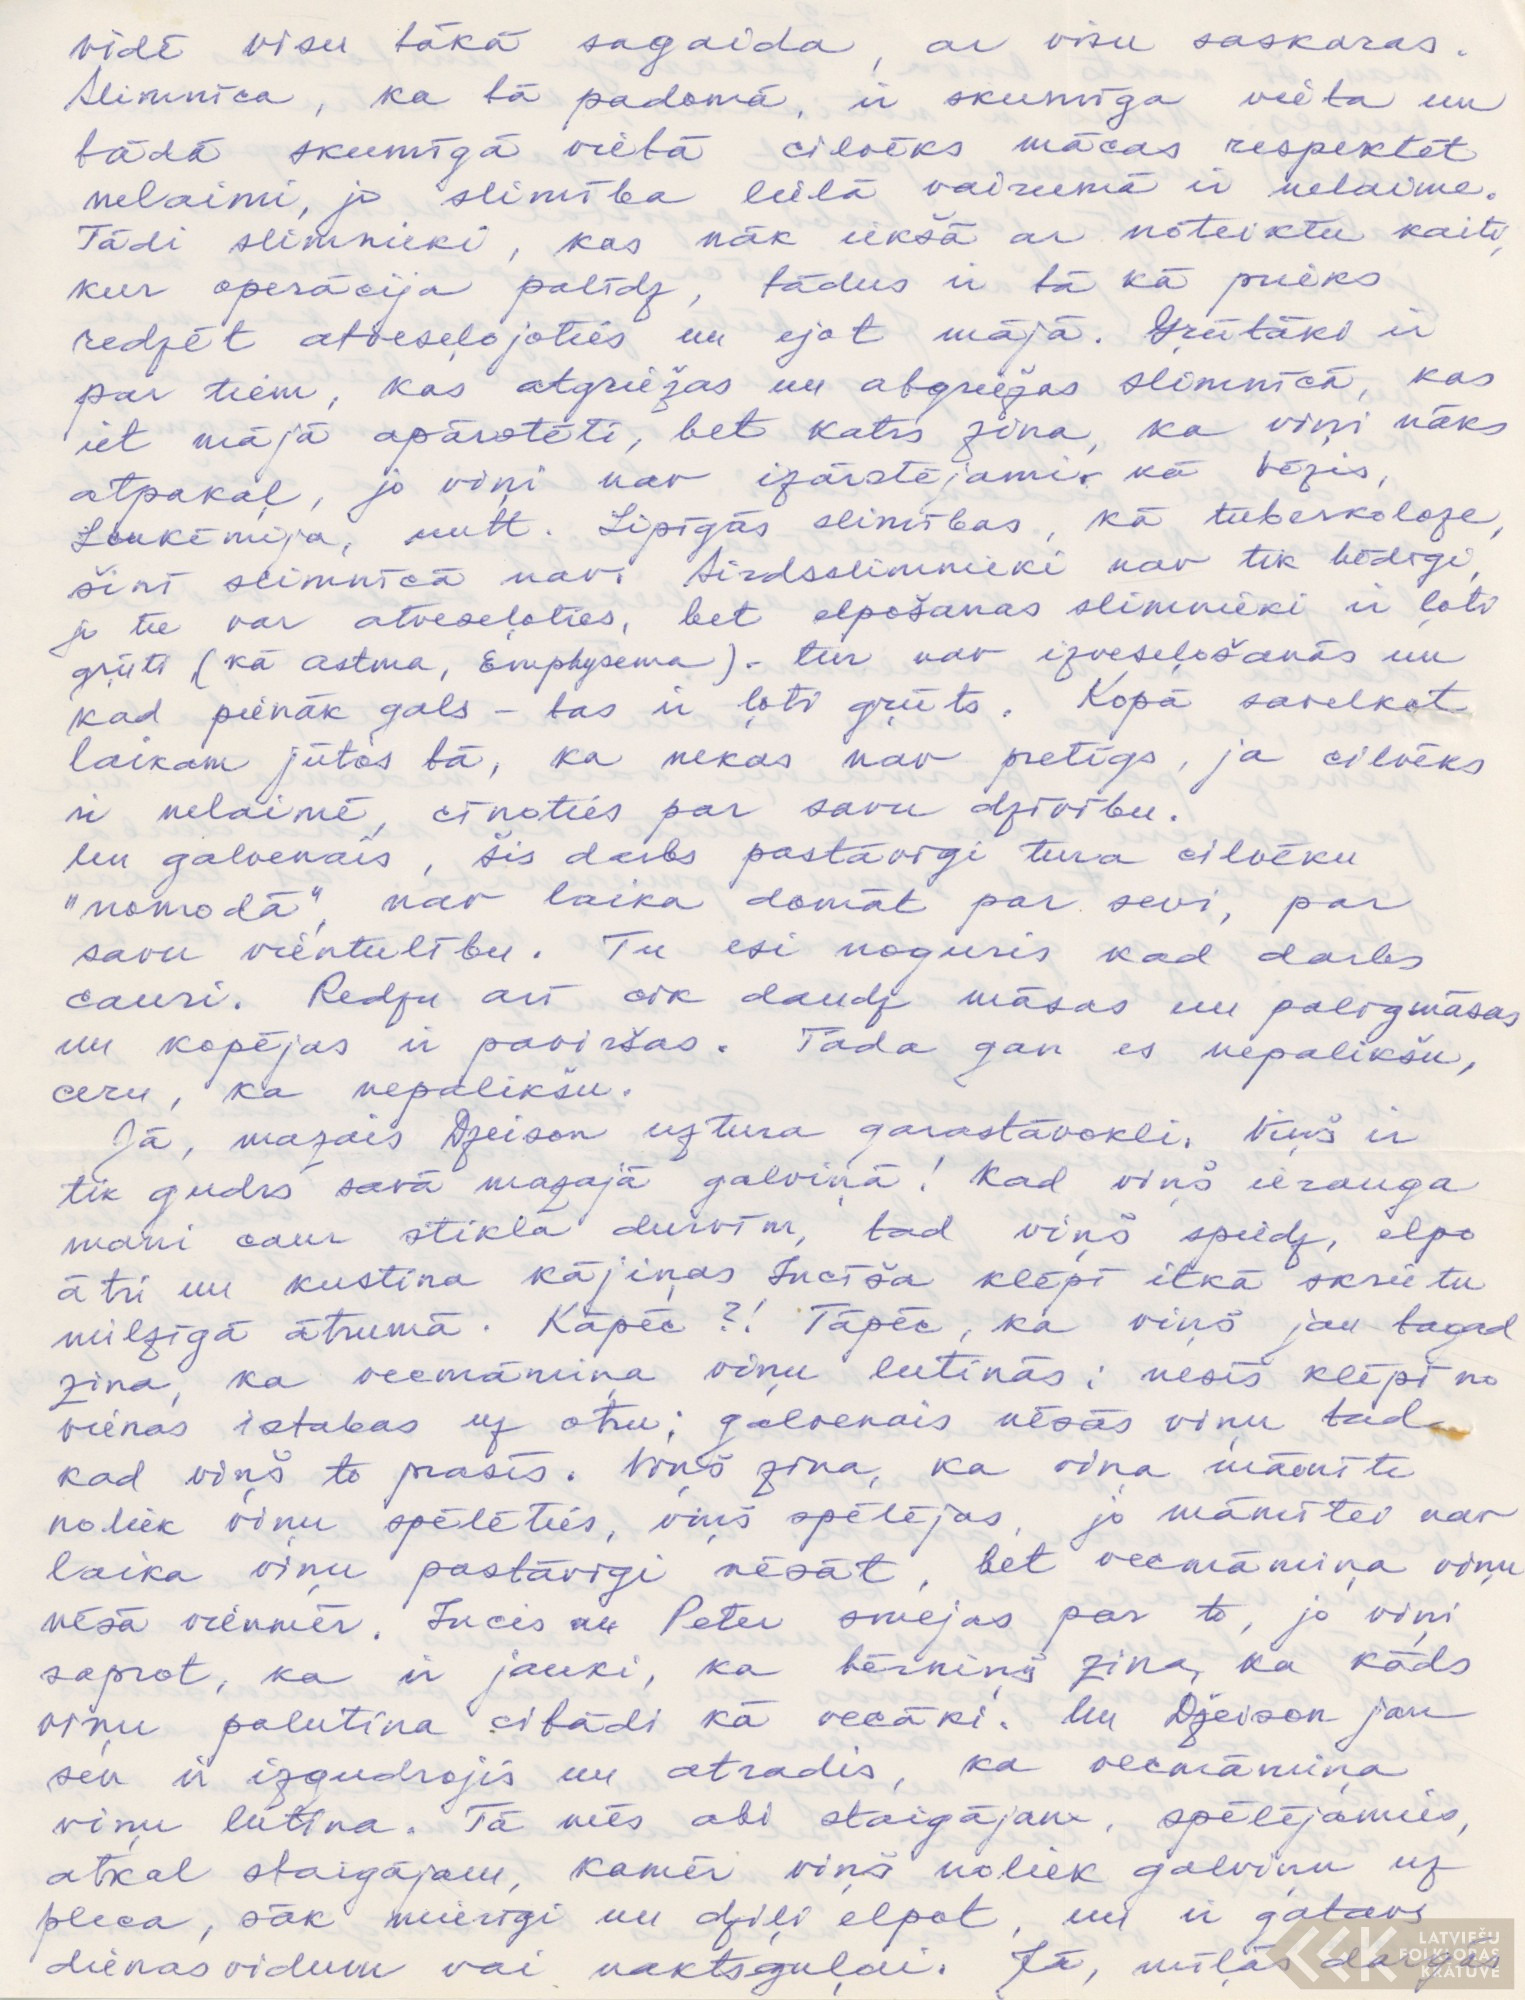 vidē visu tākā sagaida, ar visu saskaras.
Slimnīca, ka tā padomā, ir skumīga vieta un
tādā skumīgā vietā cilvēks mācas respektēt
nelaimi, jo slimība lielā vairumā ir nelaime.
Tādi slimnieki, kas nāk iekšā ar nōteiktu kaiti,
kur operācija palīdz, tādus ir tā kā prieks
redzēt atveseļojoties un ejot mājā. Grūtāki ir
par tiem, kas atgriežas un atgriežas slimnīcā, kas
iet mājā apārstēti, bet katrs zina, ka viņi nāks
atpakaļ, jo viņi nav izārstējami, kā vēzis,
Leukēmija, utt. Lipīgās slimības, kā tuberkoloze,
šinī slimnīcā nav. Sirdsslimnieki nav tik bēdīgi,
jo tie var atveseļoties, bet elpošanas slimnieki ir ļoti
grūti (kā astma, Emphysema). tur nav izveseļošanās un
kad pienāk gals – tas ir ļoti grūts. Kopā savelkot
laikam jūtos tā, ka nekas nav pretīgs, ja cilvēks
ir nelaimē, cīnoties par savu dzīvību.
Un galvenais, šis darbs pastāvīgi tura cilvēku
"nomodā", nav laika domāt par sevi, par
savu vientulību. Tu esi noguris kad darbs
cauri. Redzu arī cik daudz māsas un palīgmāsas
un kopējas ir paviršas. Tāda gan es nepalikšu,
ceru, ka nepalikšu.
Jā, mazais Džeison uztura garastāvokli. Viņš ir
tik gudrs savā mazajā galviņā! Kad viņš ierauga
mani caur stikla durvīm, tad viņš spiedz, elpo
ātri un kustina kājiņas Incīša klēpī itkā skrietu
milzīgā ātrumā. Kāpēc?! Tāpēc, ka viņš jau tagad
zina, ka vecmāmiņa viņu lutinās; nesīs klēpī no
vienas istabas uz otru; galvenais nēsās viņu tad
kad viņš to prasīs. Viņš zina, ka viņa māmīte
noliek viņu spēlēties, viņš spēlējas, jo māmītei nav
laika viņu pastāvīgi nēsāt, bet vecmāmiņa viņu
nēsā vienmēr. Incis un Peter smejas par to, jo viņi
saprot, ka ir jauki, ka bērniņš zina, ka kāds
viņu palutina citādi kā vecāki. Un Džeison jau
sen ir izgudrojis un atradis, ka vecmāmiņa
viņu lutina. Tā mēs abi staigājam, spēlējamies,
atkal staigājam, kamēr viņš noliek galviņu uz
pleca, sāk mierīgi un dziļi elpot, un ir gatavs
dienasvidum vai naktsguļai. Jā, mīļās dārgās
LATVIEŠU
FOLKLORAS
KRĀTUVE